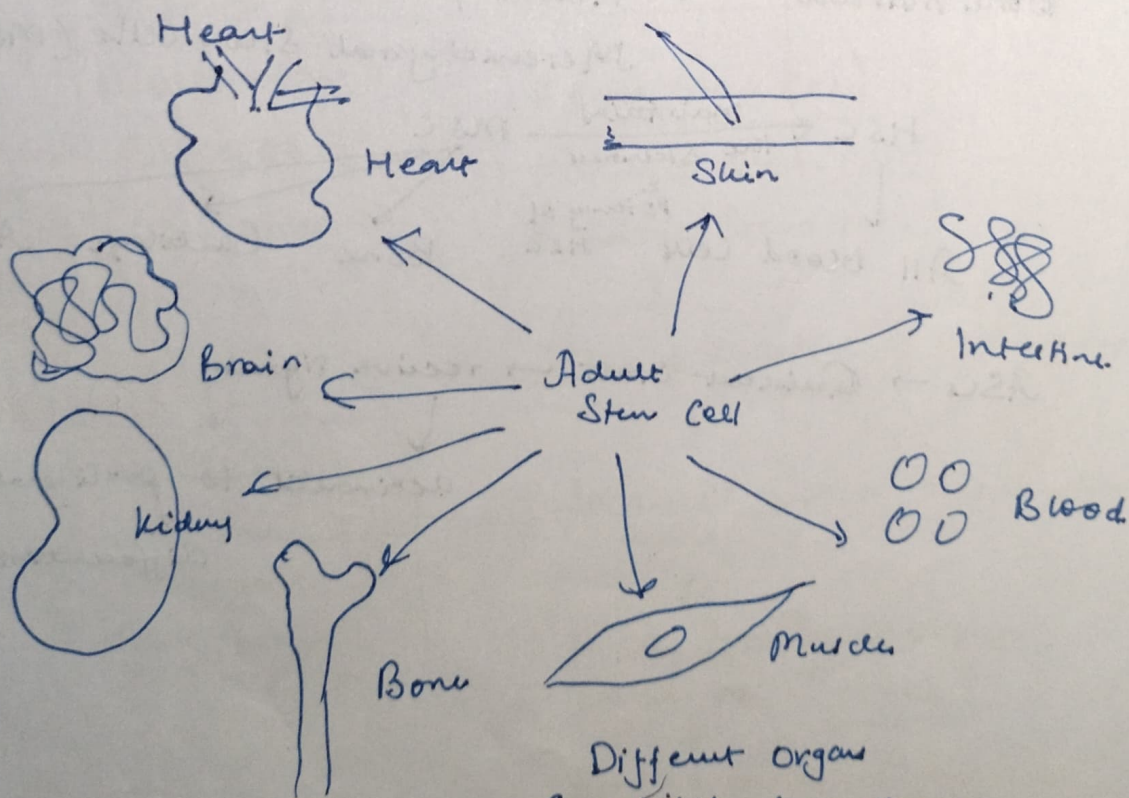 Heart
Heart
Skin
Brain
Intestine
Adult
Stem Cell
Kidney
Blood
Bone
Muscles
Different organs